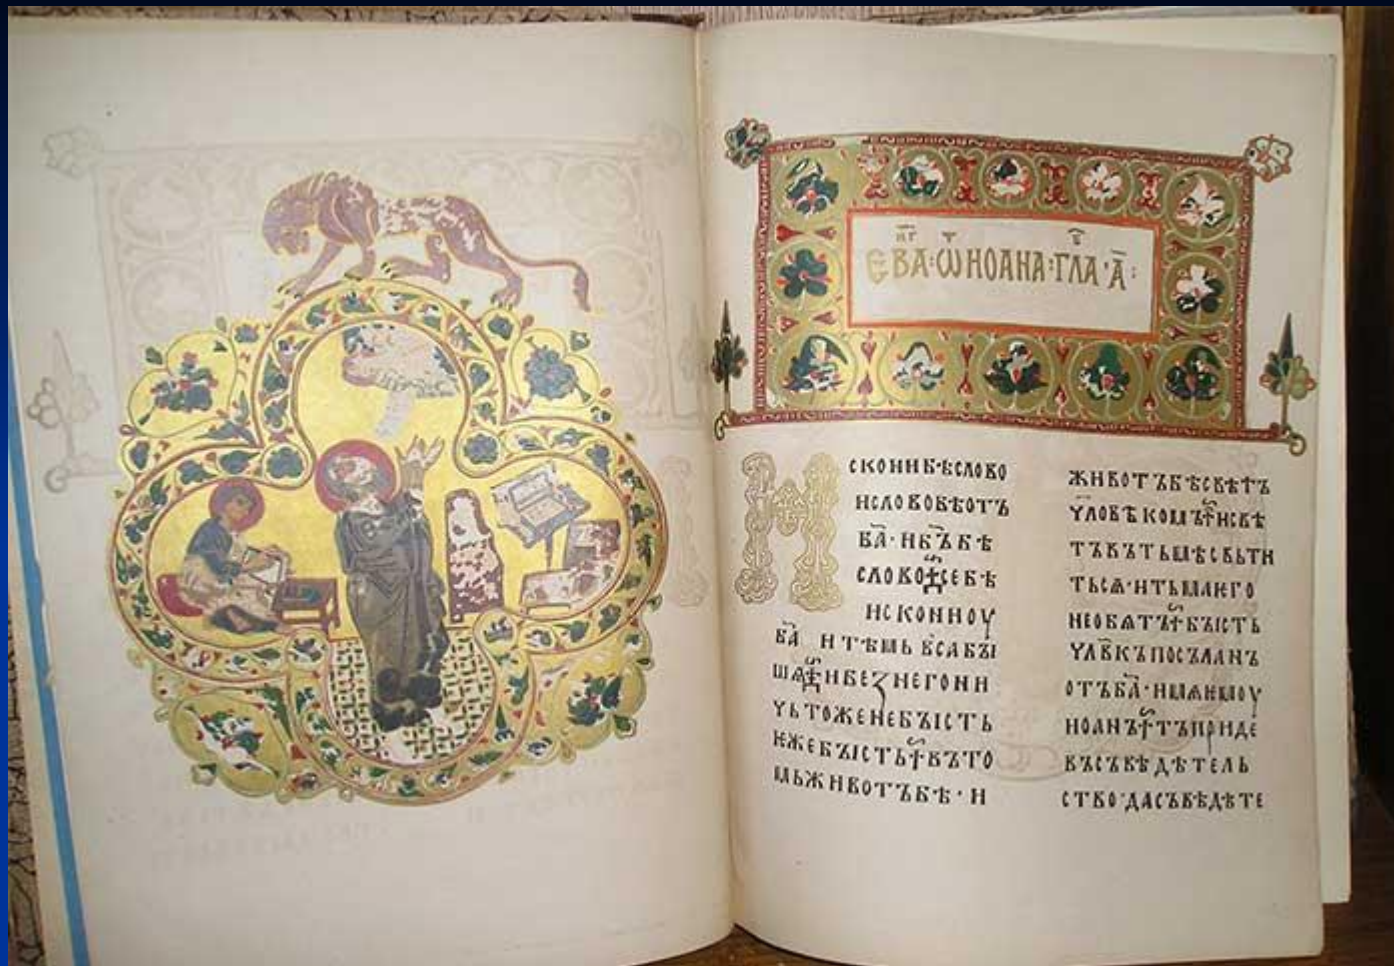 ЕВА҃·Ѿ ИОАНА·ГЛА·А҃:
ИСКОНИ БѢ СЛОВО
И СЛОВО БѢ ОТЪ
БА҃·И БЪ҃ БѢ
СЛОВО·СЕ БѢ
ИСКОНИ ОУ
БА҃ И ТѢМЬ ВСА БЫ
ШѦ И БЕЗ НЕГО НИ
ЧЬТОЖЕ НЕ БЫСТЬ
ѤЖЕ БЫСТЬ ВЪ ТО
МЬ ЖИВОТЪ БѢ · И
ЖИВОТЪ БѢ СВѢТЪ
ЧЛОВѢКОМЪ И СВѢ
ТЪ ВЪ ТЬМѢ СВЬТИ
ТЬСѦ·И ТЬМА ѤГО
НЕ ОБѦТЪ БЫСТЬ
ЧЛВ҃КЪ ПОСЪЛАНЪ
ОТЪ БА҃·ИМѦ ѤМОУ
ИОАНЪ ТЪ ПРИДЕ
ВЪ СЪВѢДѢТЕЛЬ
СТВО·ДА СЪВѢДѢТЕ